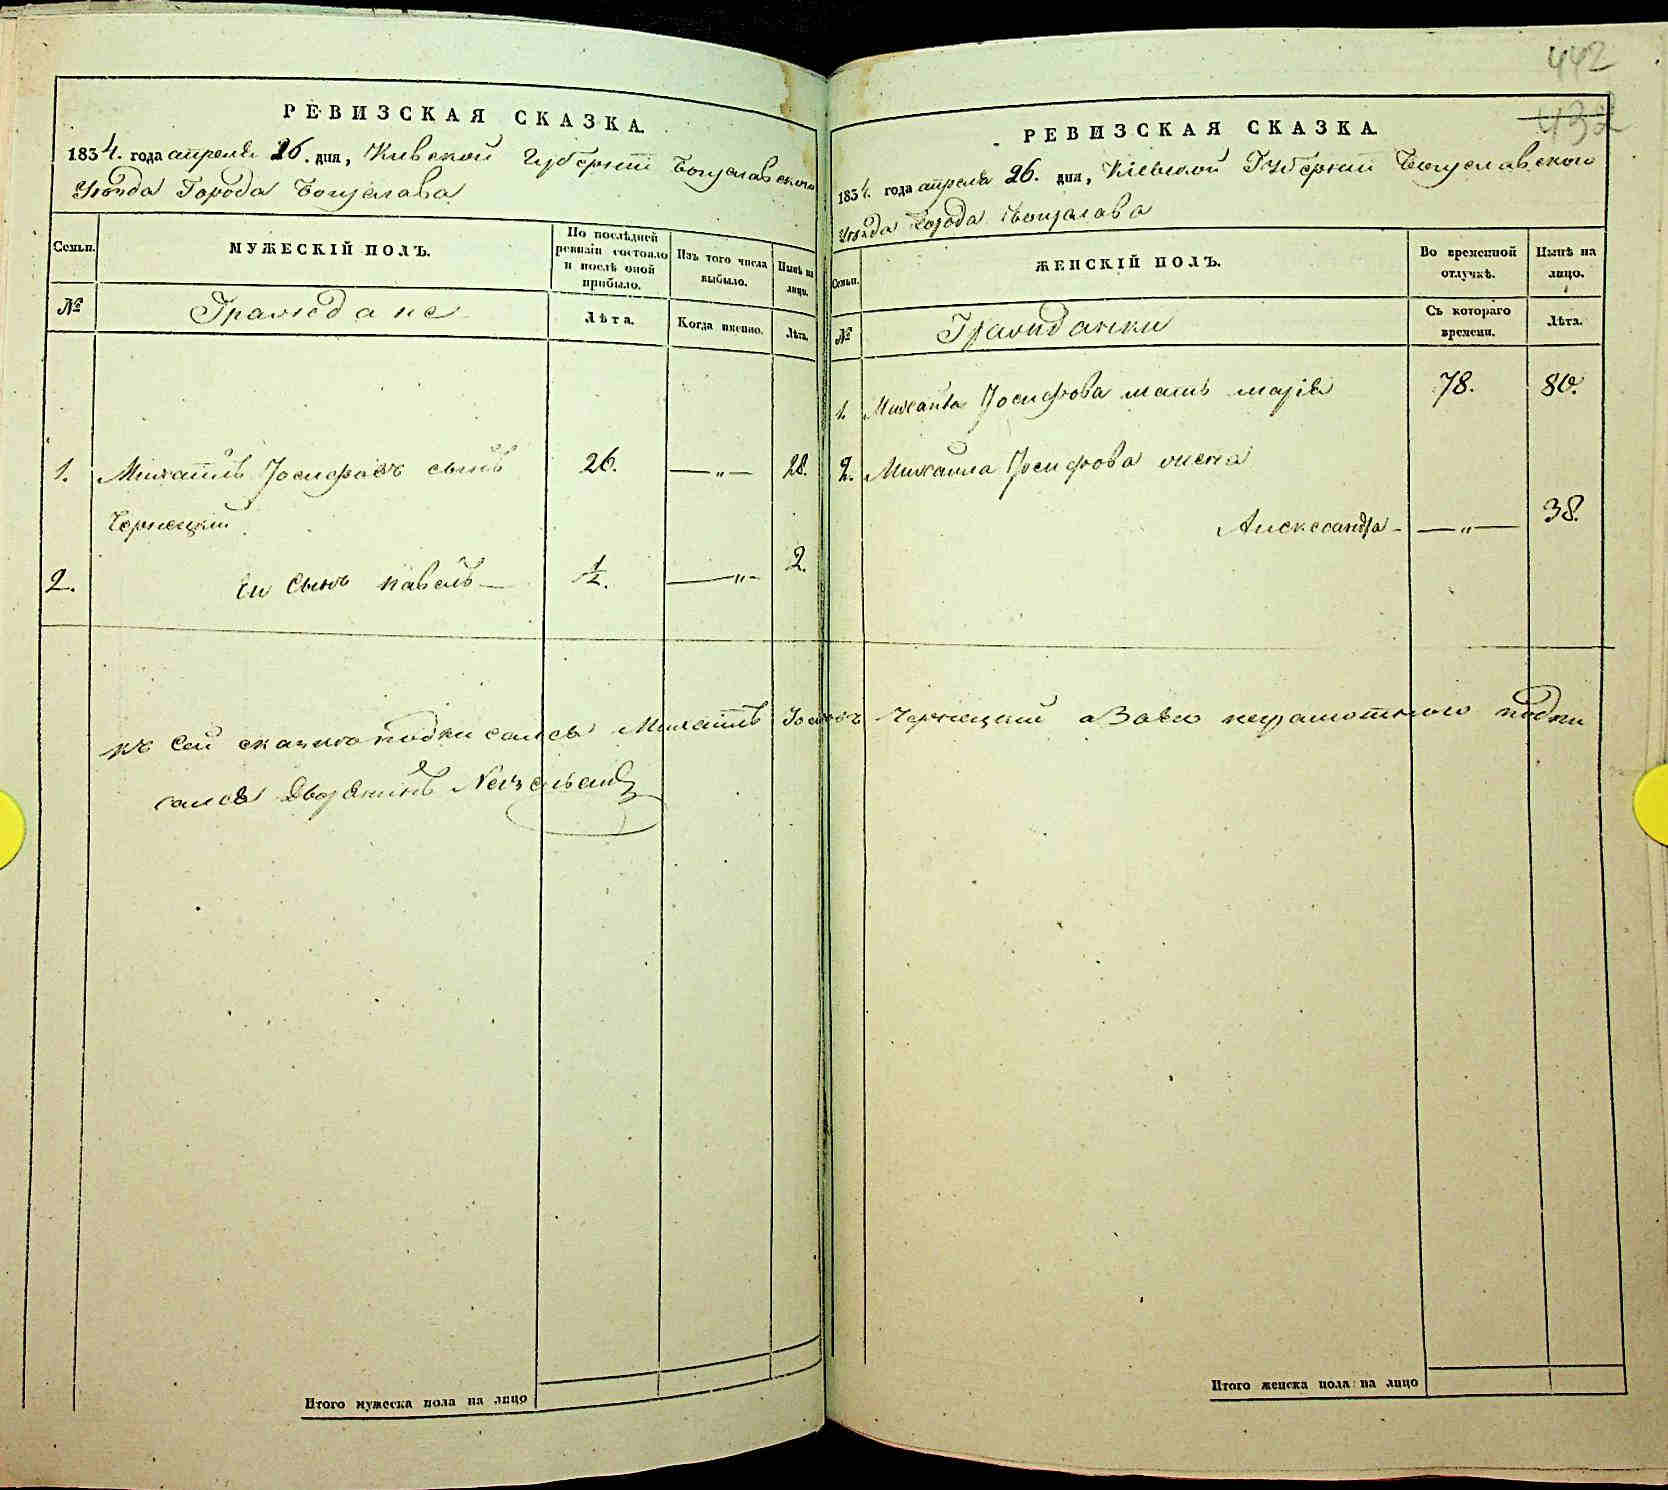 РЕВИЗСКАЯ СКАЗКА
1834. года апреля 26. дня, Киевской Губернии Богуславского
Уезда Города Богуслава
Семьи.
МУЖЕСКІЙ ПОЛЪ.
По послѣдней ревизіи состояло и послѣ оной прибыло.
Изъ того числа выбыло.
Нынѣ на лицо.
№
Граждане
Лѣта.
Когда именно.
Лѣта.
1. Михаилъ Іосифовъ сынъ 26. —„— 28.
Чернецкий
2. Ея Сынъ Павелъ — 1/2. —„— 2.
Итого мужеска пола на лицо
442
432
РЕВИЗСКАЯ СКАЗКА
1834. года апреля 26. дня, Кіевской Губернии Богуславского
Уезда Города Богуслава
Семьи.
ЖЕНСКІЙ ПОЛЪ.
Во временной отлучкѣ.
Нынѣ на лицо.
№
Гражданки
Съ котораго времени.
Лѣта.
1. Михаила Іосифова мать Марія 78. 80.
2. Михаила Іосифова жена
Александра —„— 38.
къ сей сказке подписался Михаилъ Іосифовъ Чернецкий а За его неграмотного подпи
сался Дворянинъ
Итого женска пола на лицо